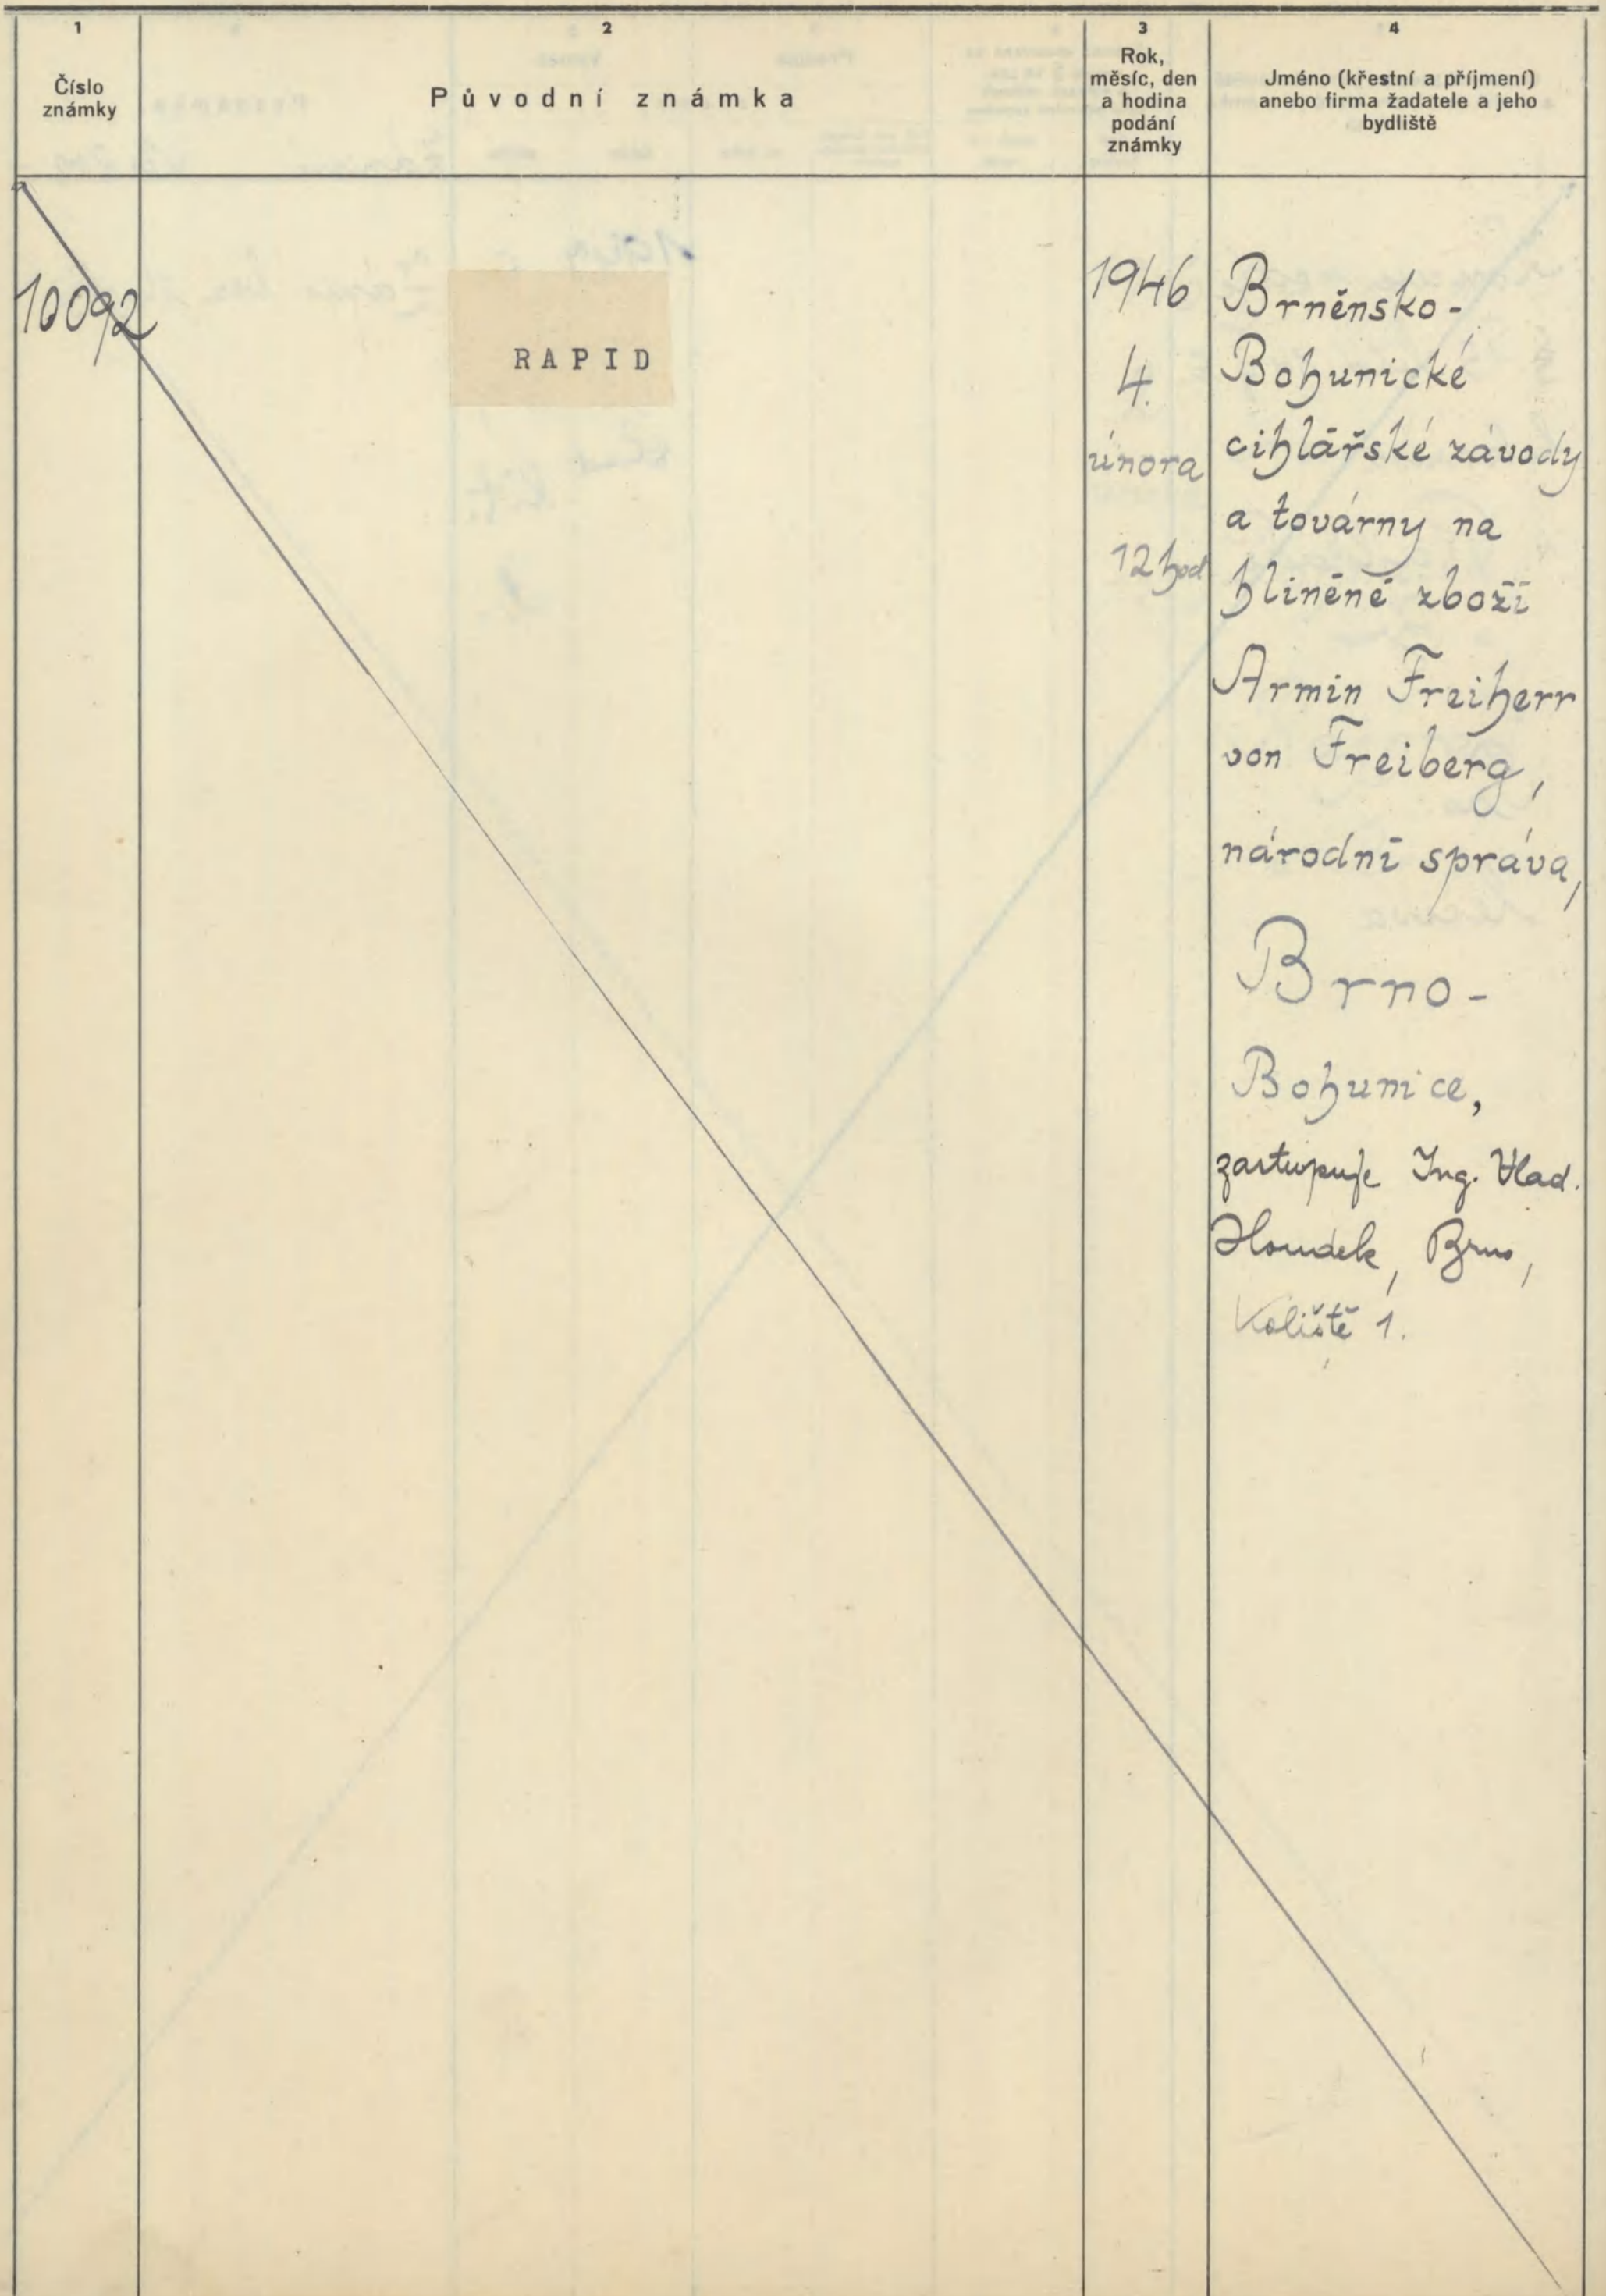 1
Číslo
známky
2
Původní známka
3
Rok,
měsíc, den
a hodina
podání
známky
4
Jméno (křestní a příjmení)
anebo firma žadatele a jeho
bydliště
10092
RAPID
1946
4.
února
12 hod
Brněnsko-
Bohunické
cihlářské závody
a továrny na
hliněné zboží
Armin Freiherr
von Freiberg,
národní správa,
Brno-
Bohunice,
zastupuje Ing. Vlad.
Houdek, Brno,
Koliště 1.